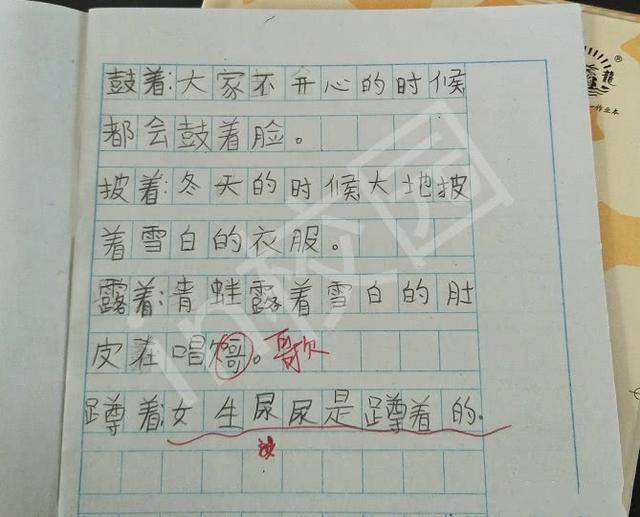 鼓着:大家不开心的时候
都会鼓着脸。
披着:冬天的时候大地披
着雪白的衣服。
露着:青蛙露着雪白的肚
皮在唱。歌
蹲着:女生尿尿是蹲着的.
in校园
龍
作业本